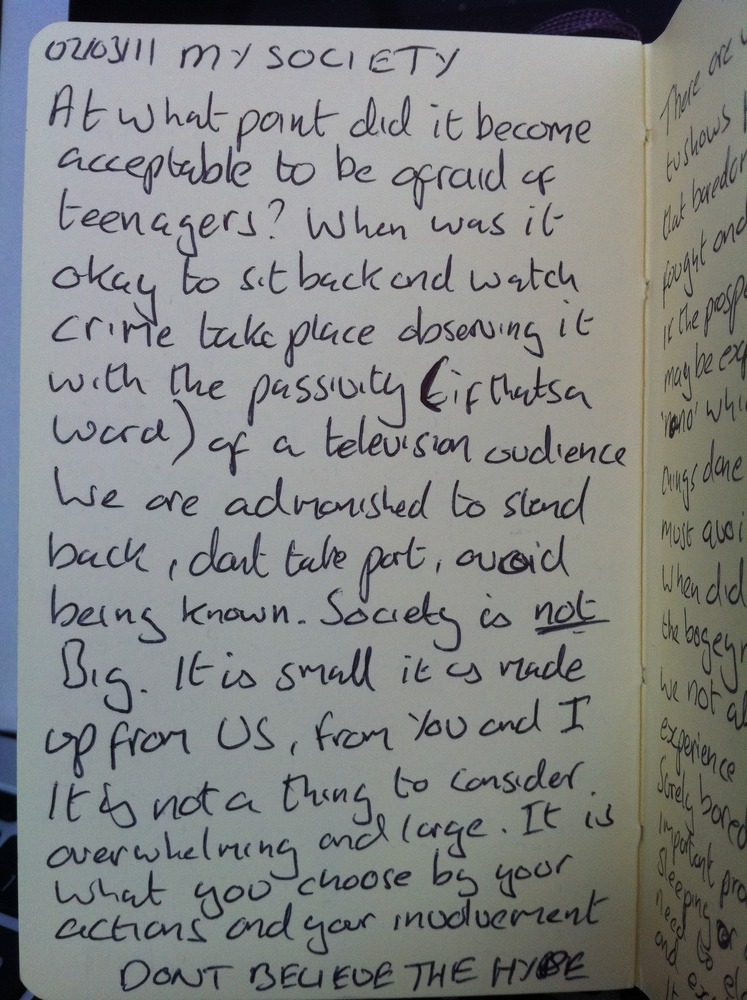 02/03/11 MY SOCIETY
At what point did it become
acceptable to be afraid of
teenagers? When was it
okay to sit back and watch
crime take place observing it
with the passivity (if thats a
word) of a television audience
We are admonished to stand
back, dont take part, avoid
being known. Society is not
Big. It is small it is made
up from US, from You and I
It is not a thing to consider.
overwhelming and large. It is
what you choose by your
actions and your involvement
DONT BELIEVE THE HYPE
There are
tv shows
that boredom
fought and
if the prospe
may be exp
whi
things done
must avoi
When did
the bogeym
we not a
experience
Surely bored
important pro
sleeping or
need to
and ex
It